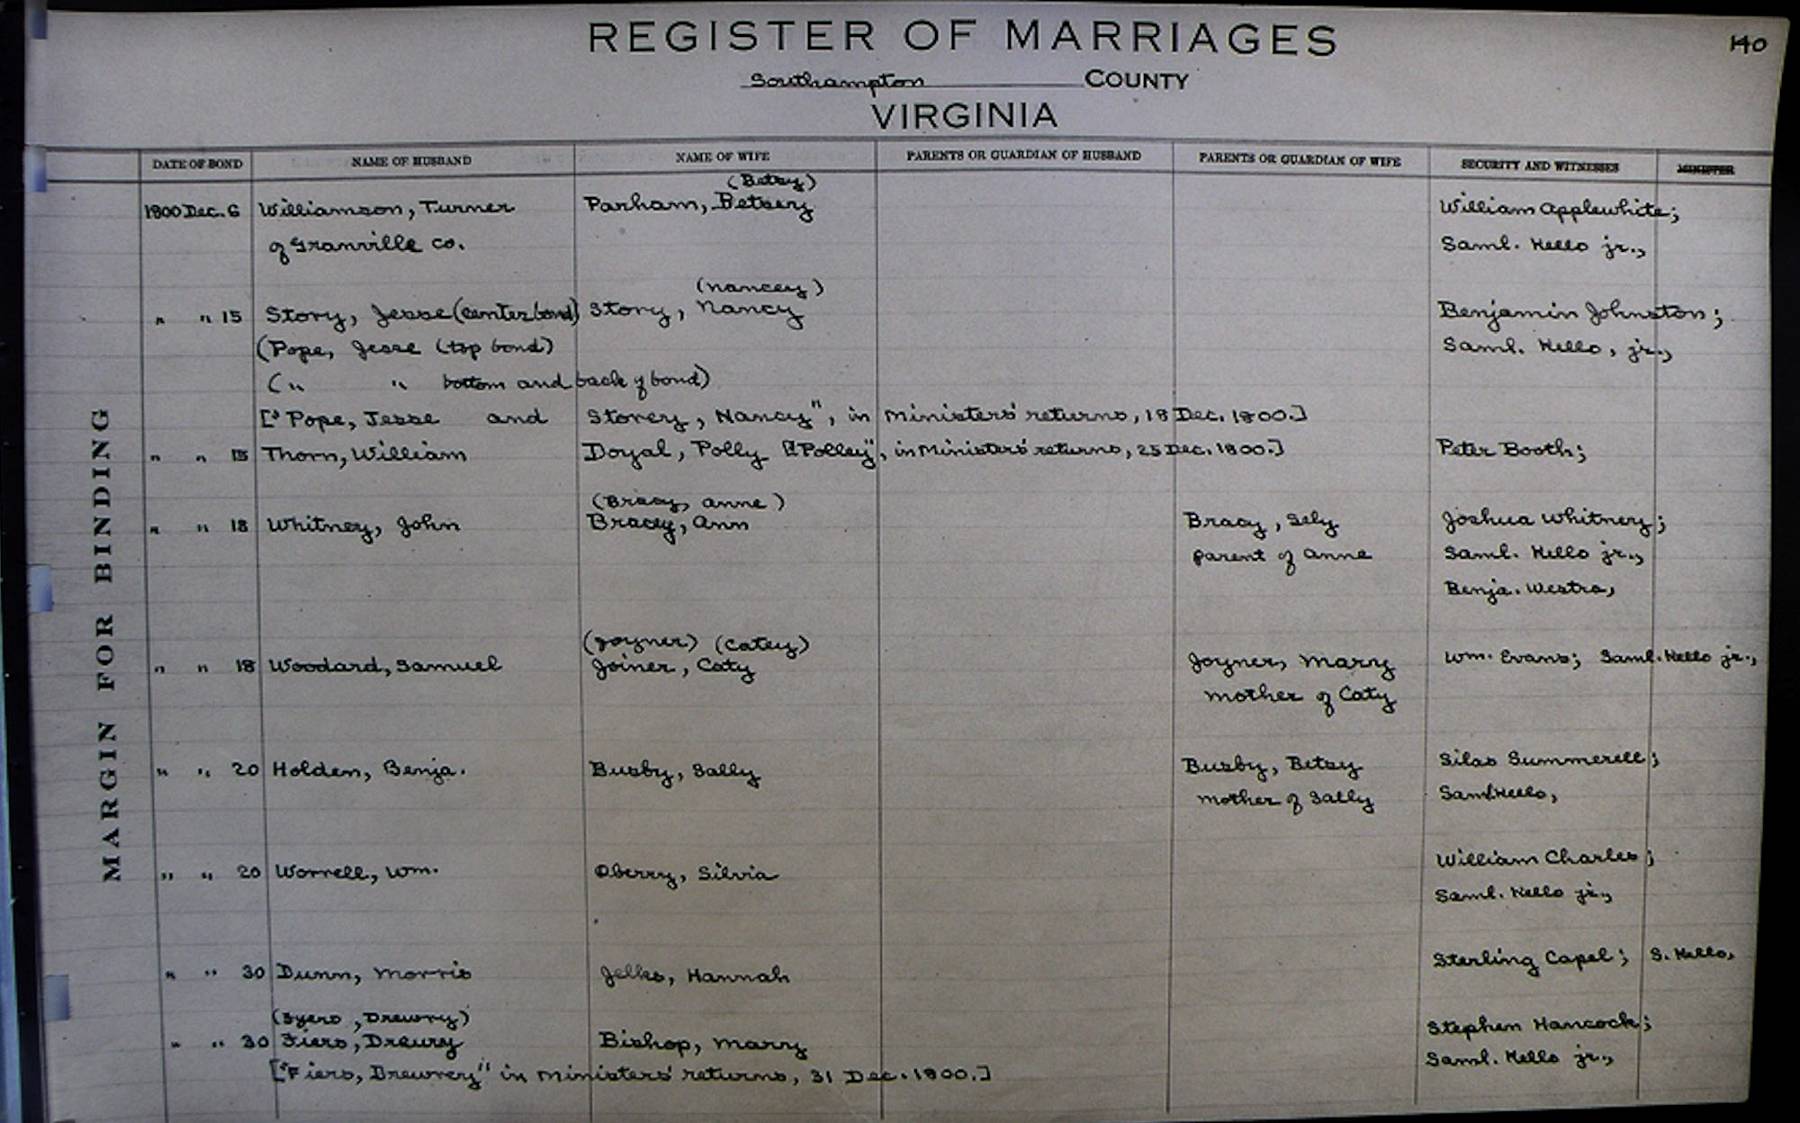 REGISTER OF MARRIAGES
140
Southampton COUNTY
VIRGINIA
DATE OF BOND NAME OF HUSBAND NAME OF WIFE PARENTS OR GUARDIAN OF HUSBAND PARENTS OR GUARDIAN OF WIFE SECURITY AND WITNESSES MINISTER
(Betsy)
1800 Dec. 6 Williamson, Turner Parham, Betsery William Applewhite;
of Granville co. Saml. Kello jr.,
(Nancey)
" " 15 Story, Jesse (center bond) Story, Nancy Benjamin Johnston;
(Pope, Jesse (top bond) Saml. Kello, jr.,
(" " bottom and back of bond)
["Pope, Jesse and Storey, Nancy", in Ministers' returns, 18 Dec. 1800.]
" " 15 Thorn, William Doyal, Polly ["Polley", in Ministers' returns, 25 Dec. 1800.] Peter Booth;
(Bracy, Anne)
" " 18 Whitney, John Bracey, Ann Bracy, Sely Joshua Whitney;
parent of Anne Saml. Kello jr.,
Benja. Westra,
(Joyner) (Catey)
" " 18 Woodard, Samuel Joiner, Caty Joyner, Marry Wm. Evans; Saml. Kello jr.,
mother of Caty
" " 20 Holden, Benja. Busby, Sally Busby, Betsy Silas Summerell;
mother of Sally Saml Kello,
" " 20 Worrell, Wm. Oberry, Silvia William Charles;
Saml. Kello jr.,
" " 30 Dunn, Morris Jelks, Hannah Sterling Capel; S. Kello,
(Fyers, Drewry)
" " 30 Fiers, Dreury Bishop, Marry Stephen Hancock;
["Fiers, Drewrey" in Ministers' returns, 31 Dec. 1800.] Saml. Kello jr.,
MARGIN FOR BINDING